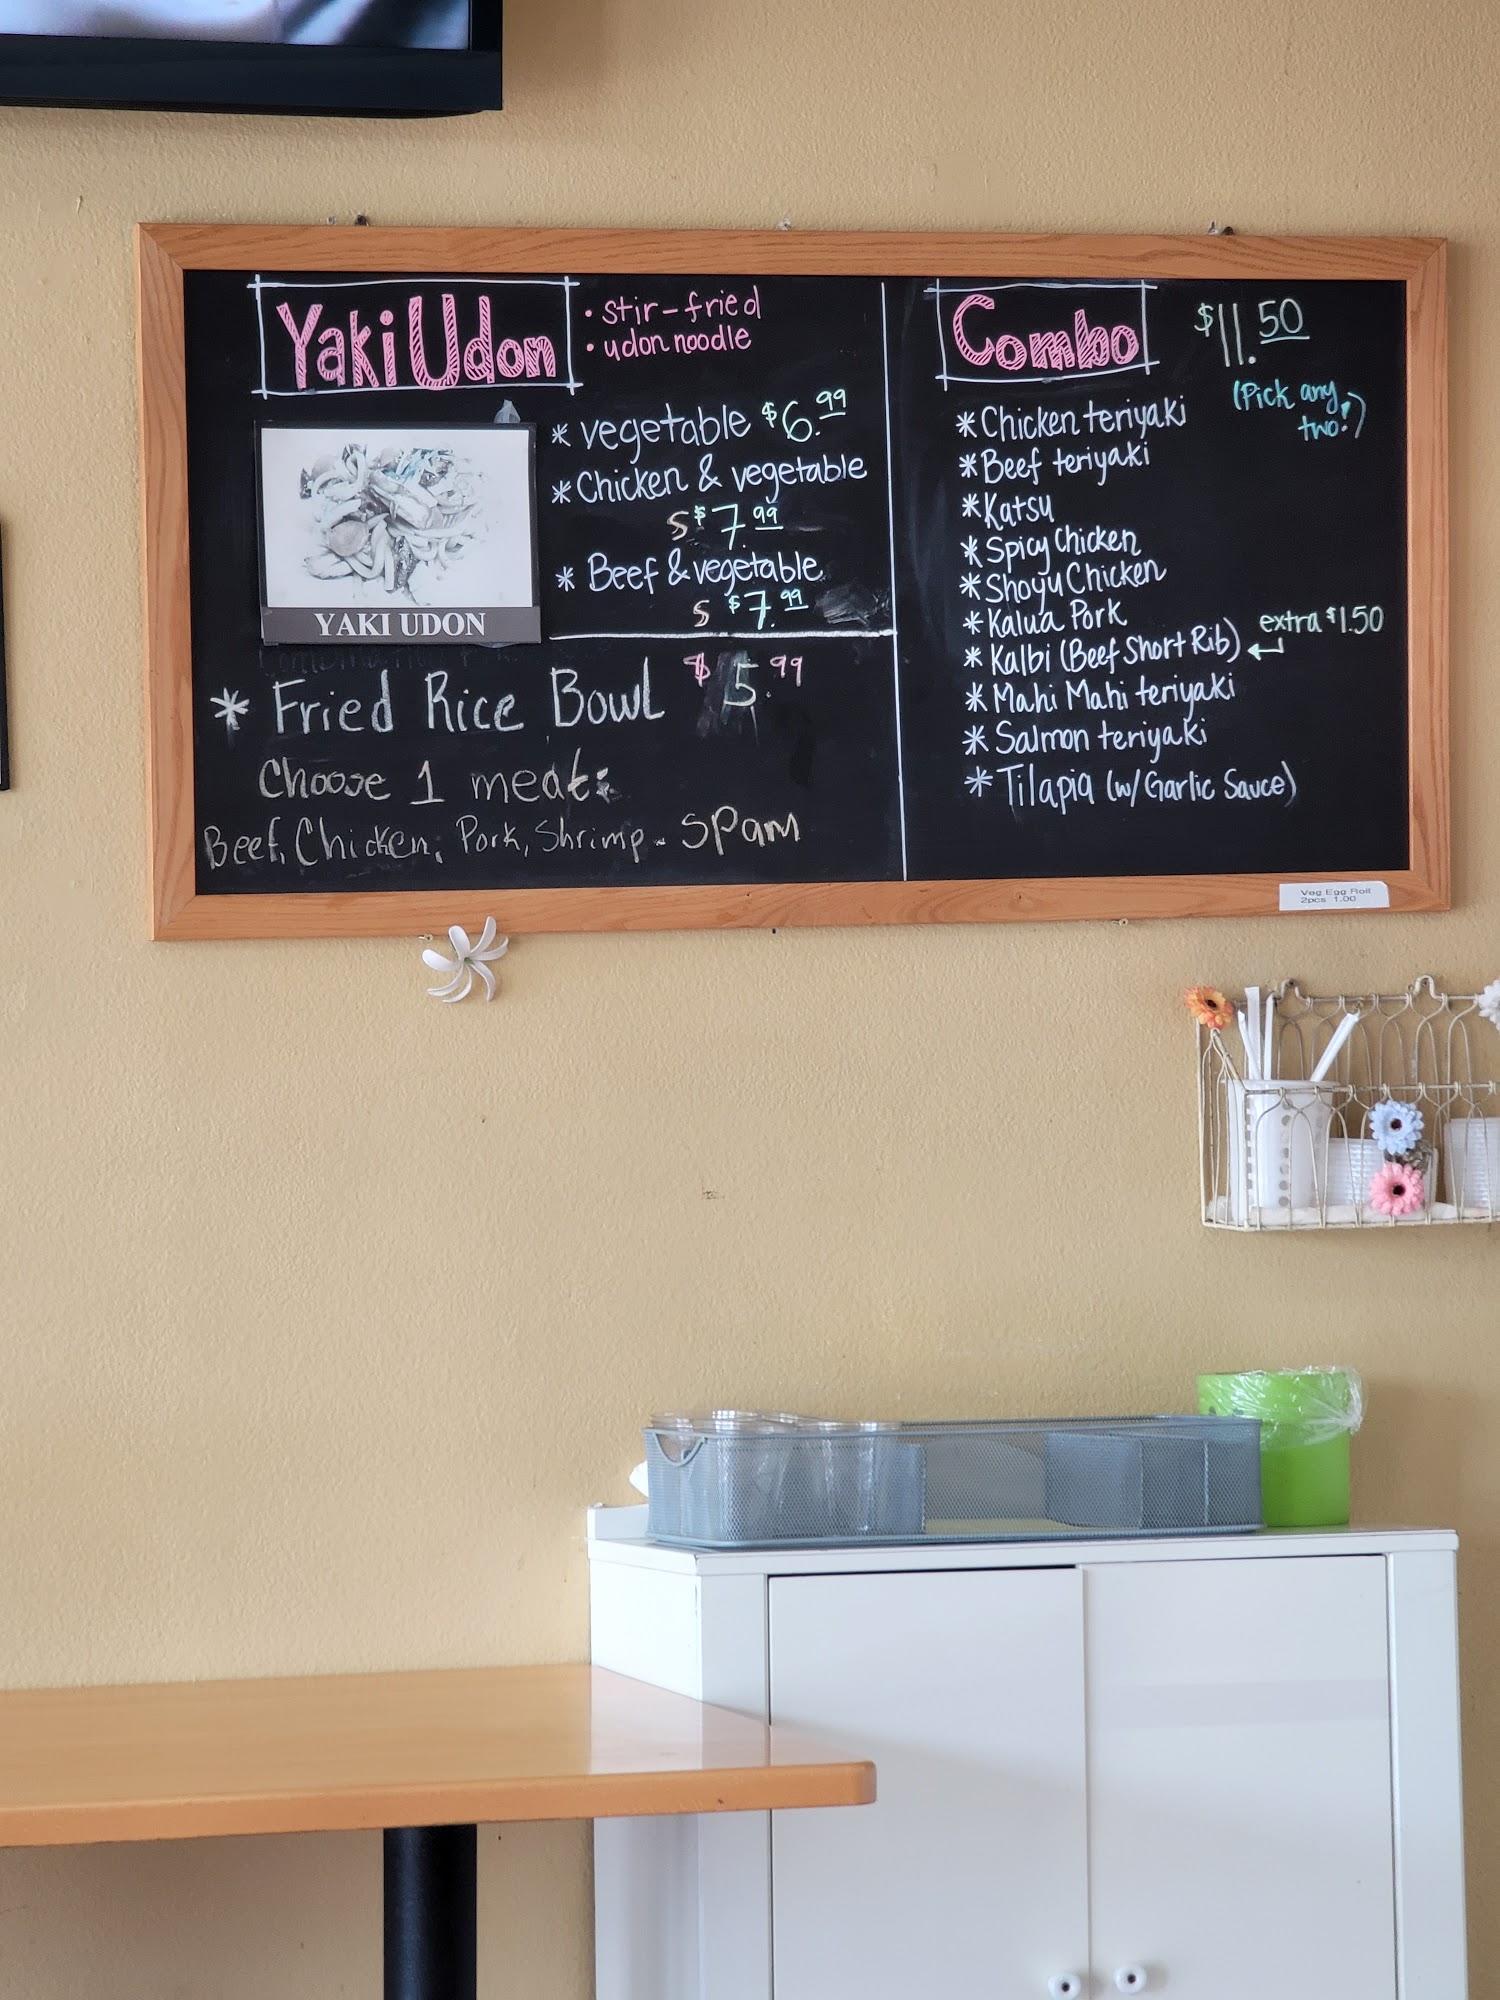 Yaki Udon
• stir-fried
• udon noodle
* vegetable $6.99
* Chicken & vegetable
s $7.99
* Beef & vegetable
s $7.99
YAKI UDON
* Fried Rice Bowl $5.99
Choose 1 meat:
Beef, Chicken, Pork, Shrimp - Spam
Combo $11.50
(Pick any
two!)
* Chicken teriyaki
* Beef teriyaki
* Katsu
* Spicy Chicken
* Shoyu Chicken
* Kalua Pork
* Kalbi (Beef Short Rib) extra $1.50
* Mahi Mahi teriyaki
* Salmon teriyaki
* Tilapia (w/ Garlic Sauce)
Veg Egg Roll
2pcs 1.00